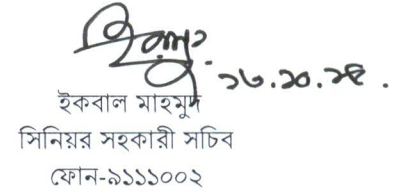 ২৩.১০.২৫.
ইকবাল মাহমুদ
সিনিয়র সহকারী সচিব
ফোন-৯১১১০০২